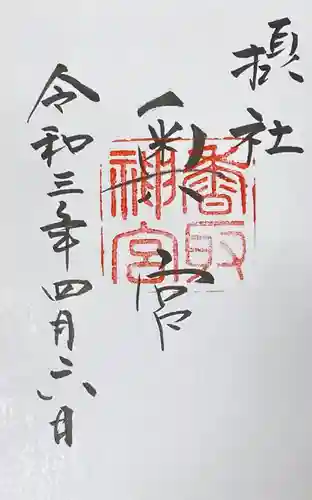 摂社
奥宮
香取
神宮
令和三年四月六日